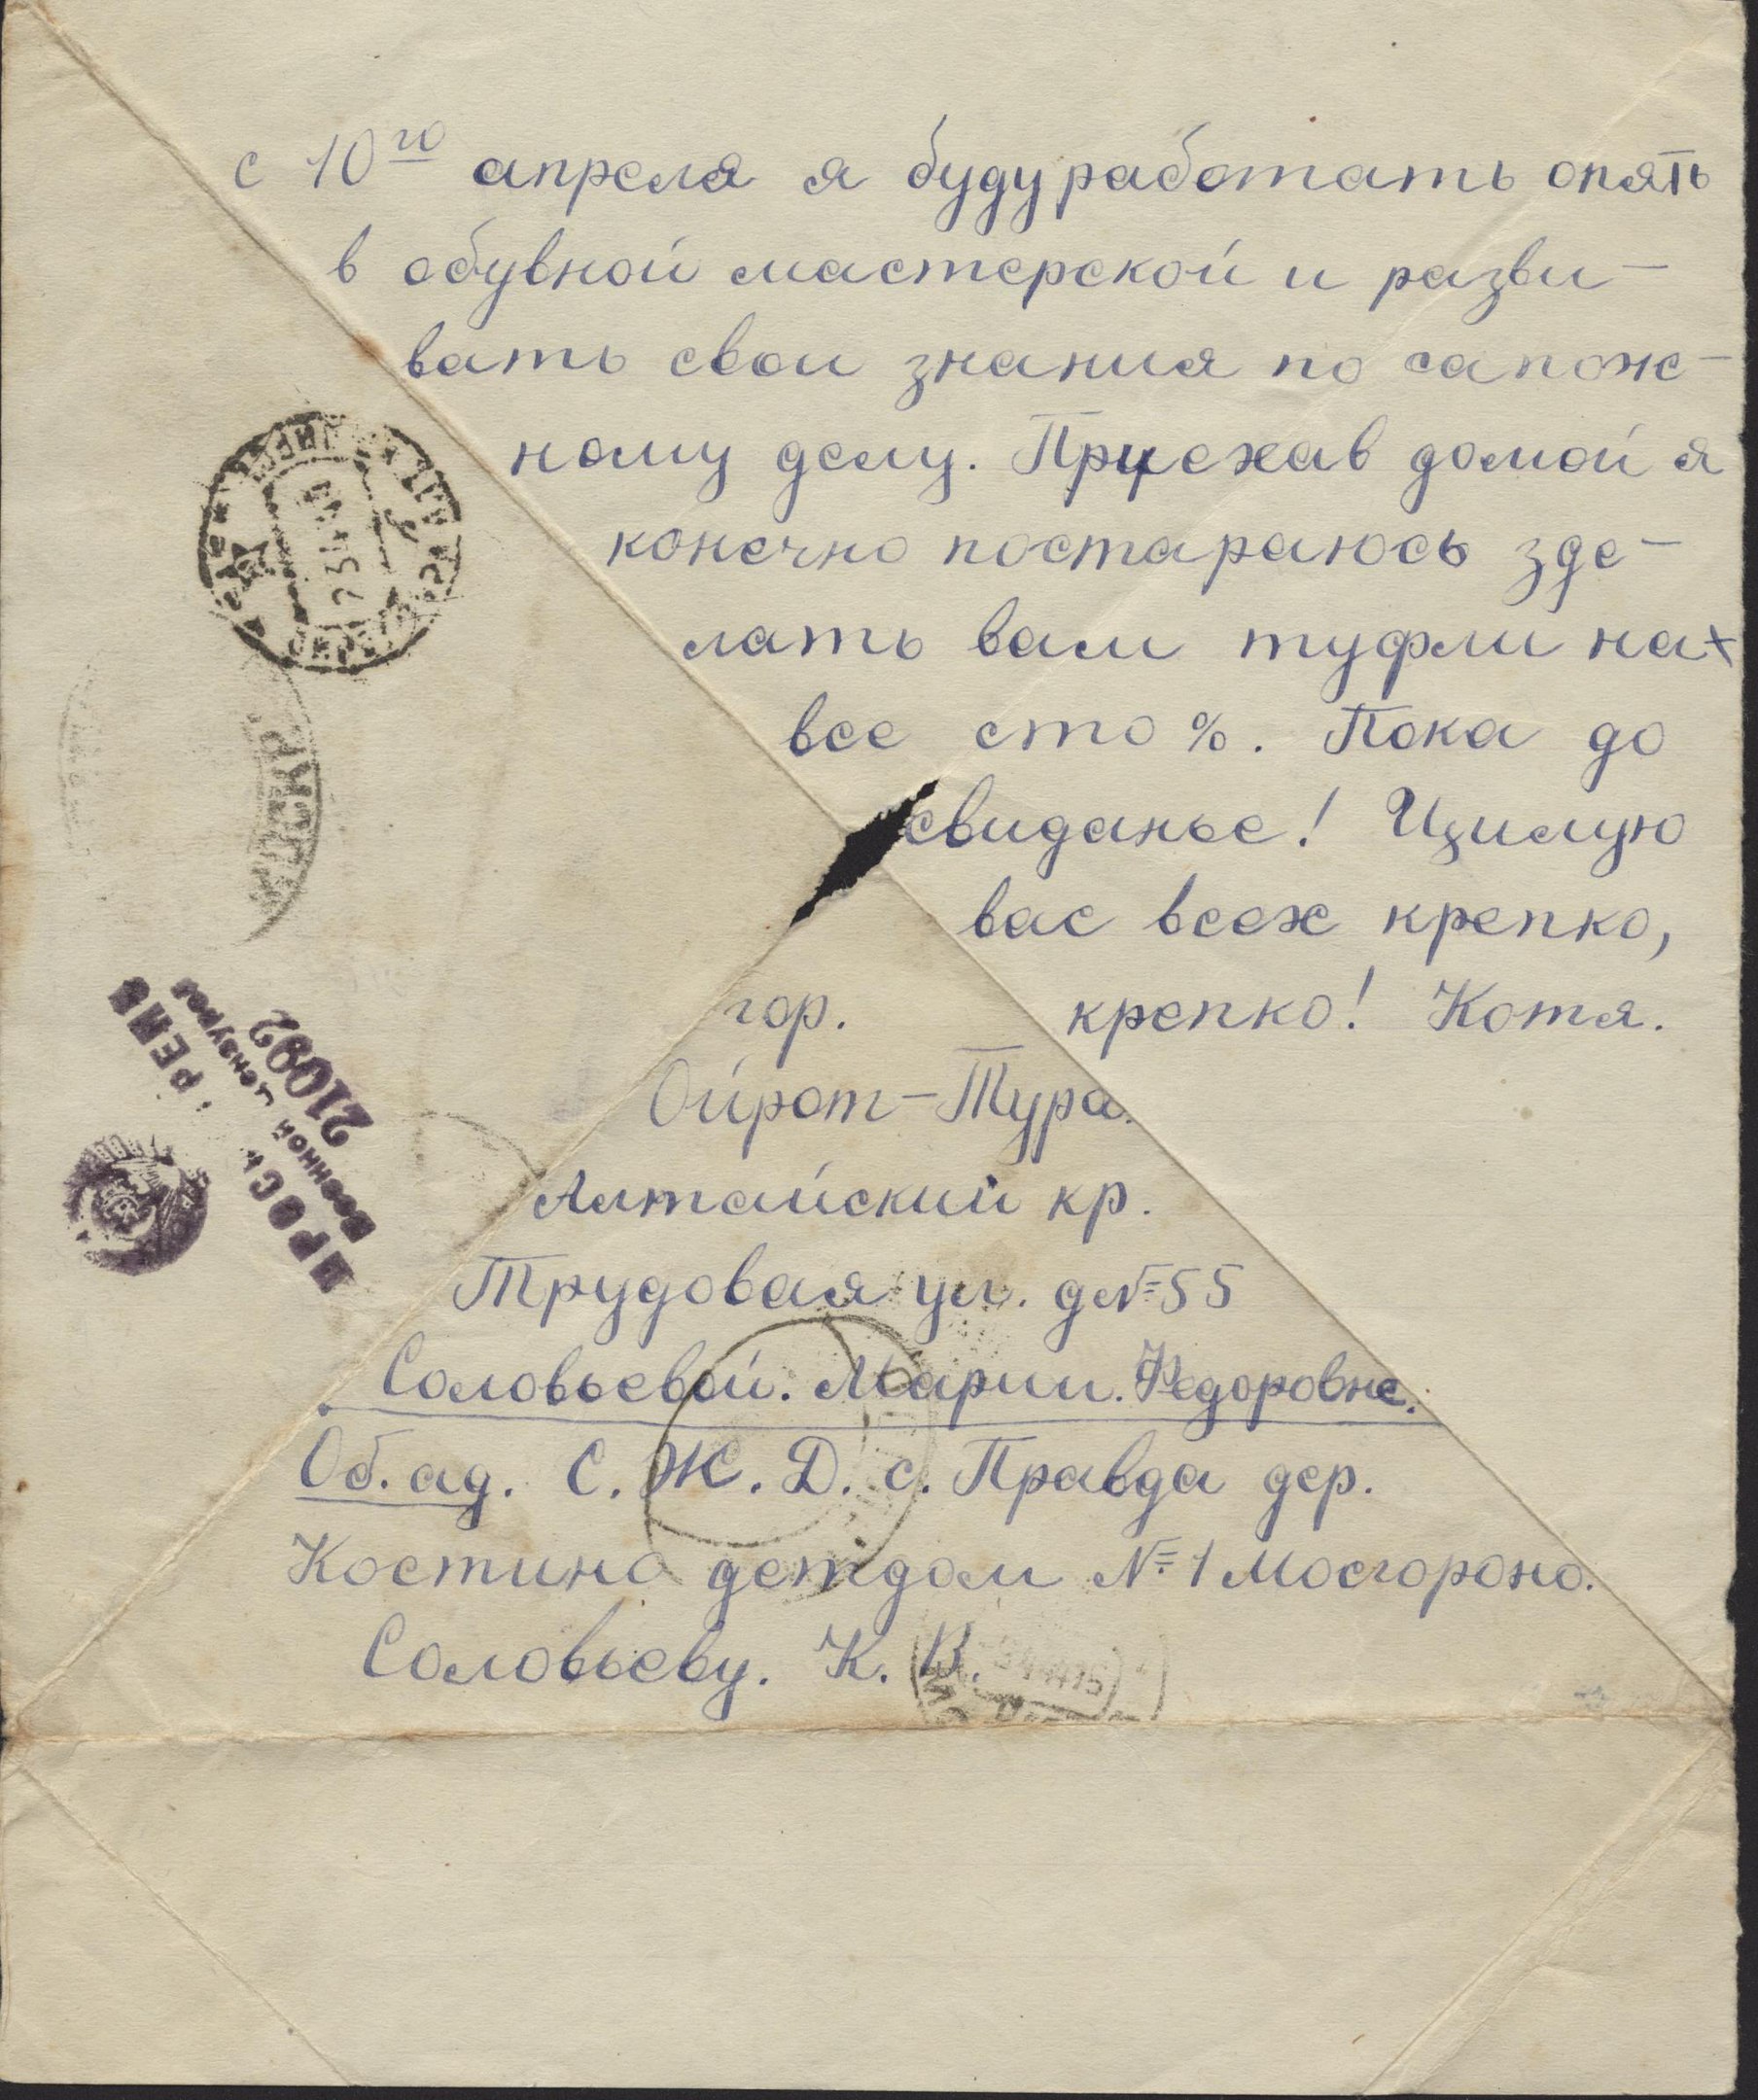 с 10го апреля я буду работать опять
в обувной мастерской и разви-
вать свои знания по сапож-
ному делу. Приехав домой я
конечно постараюсь зде-
лать вам туфли на
все сто %. Пока до
свиданье! Цилую
вас всех крепко,
крепко! Котя.
гор.
Ойрот-Тура.
Алтайский кр.
Трудовая ул. д№55
Соловьевой. Марии. Федоровне.
Об. ад. С. Ж. Д. с. Правда дер.
Костино детдом №1 Мосгороно.
Соловьеву. К. В.
Военной Цензурой
21092